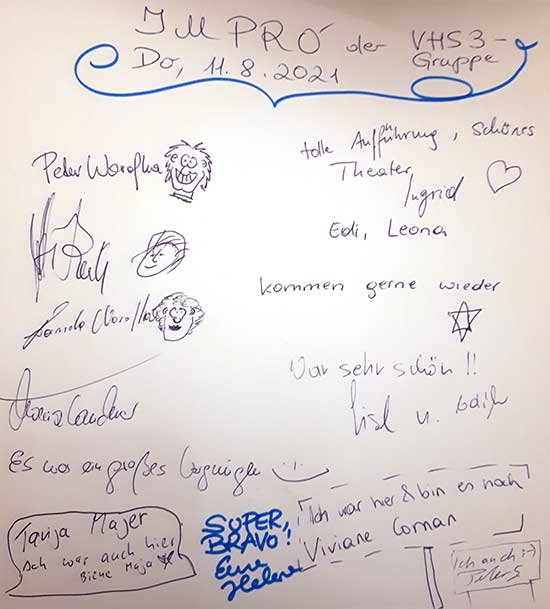 IMPRÓ der VHS 3-Gruppe
Do, 11.8.2021
Peter Worofka
tolle Aufführung, schönes
Theater,
Ingrid
Edi, Leona
kommen gerne wieder
Worofka
War sehr schön!!
Lisl u.
Es war ein großes Vergnügen :-)
Tanja Majer
Ich war auch hier
Biene Maja
SUPER,
BRAVO!
Eure
Helene
Ich war hier & bin es noch
Viviane Coman
Ich auch :-)
Peter S